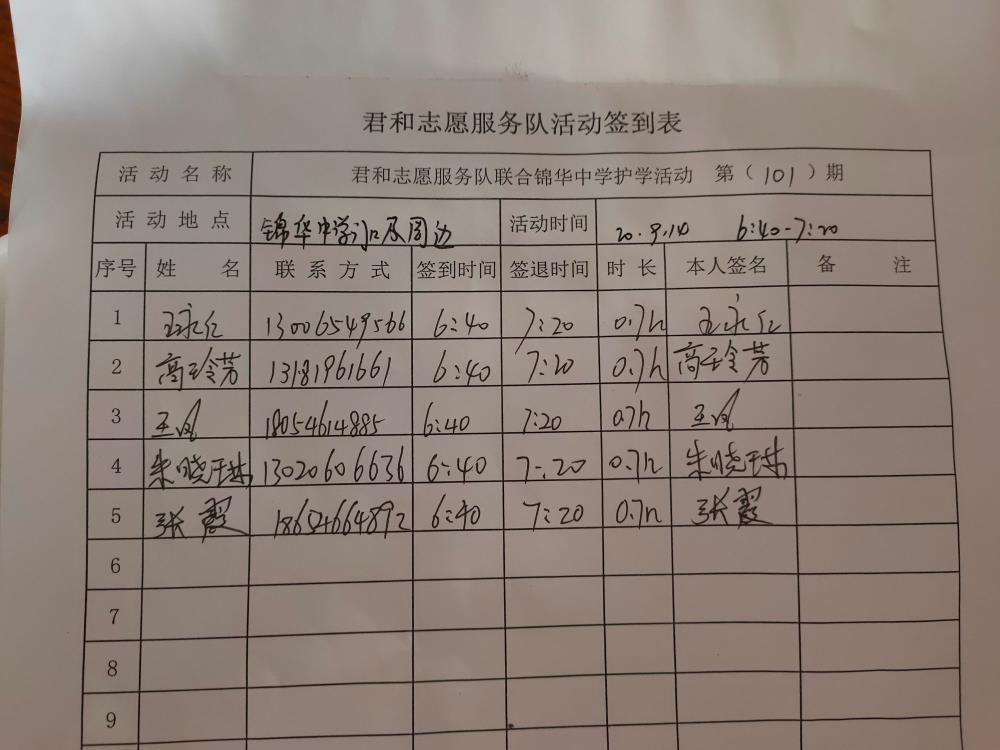 君和志愿服务队活动签到表
活动名称 君和志愿服务队联合锦华中学护学活动 第（101）期
活动地点 锦华中学门口及周边 活动时间 20.9.14 6:40-7:20
序号 姓名 联系方式 签到时间 签退时间 时长 本人签名 备注
1 王永仁 13006549566 6:40 7:20 0.7h 王永仁
2 高玉玲芳 13181961661 6:40 7:20 0.7h 高玉玲芳
3 王凤 18054614885 6:40 7:20 0.7h 王凤
4 朱晓玉林 13020606636 6:40 7:20 0.7h 朱晓玉林
5 张霞 18654664892 6:40 7:20 0.7h 张霞
6
7
8
9